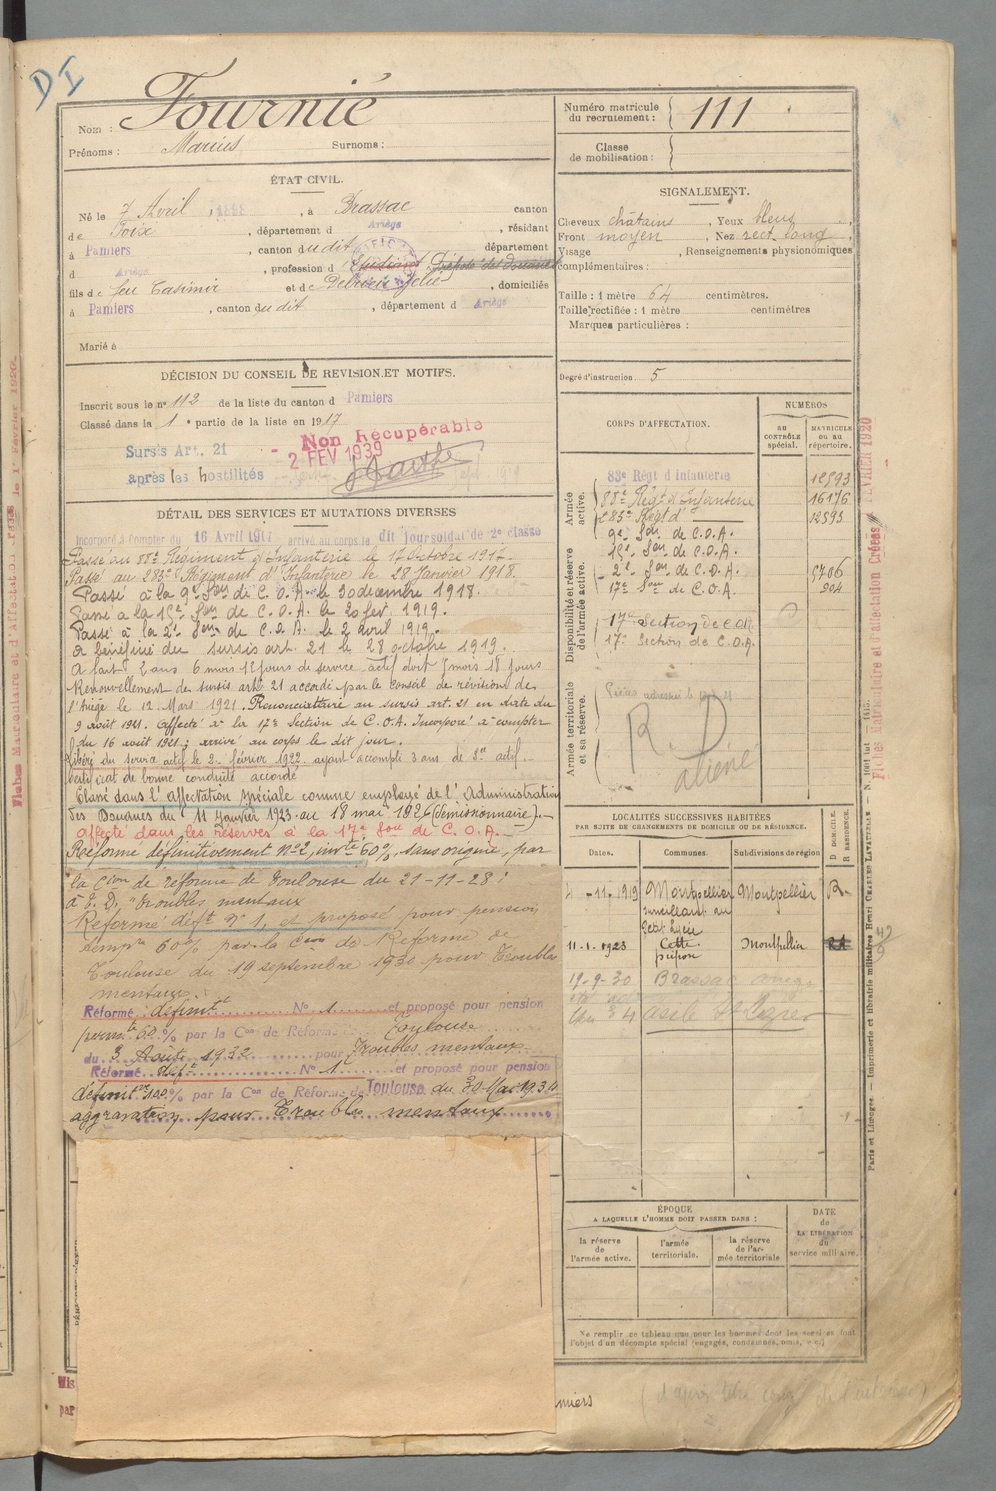 DI
Nom : Fournié
Prénoms : Marius Surnoms :
Numéro matricule du recrutement : 111
Classe de mobilisation :
ÉTAT CIVIL.
Né le 7 Avril 1898, à Brassac canton
de Foix, département d Ariège, résidant
à Pamiers, canton dudit département
d Ariège, profession d Etudiant Préposé des Douanes
fils de feu Casimir et de Julie, domiciliés
à Pamiers, canton dudit, département d Ariège
Marié à
SIGNALEMENT.
Cheveux châtains, Yeux bleus,
Front moyen, Nez rect. long,
Visage, Renseignements physionomiques
complémentaires :
Taille : 1 mètre 64 centimètres.
Taille rectifiée : 1 mètre centimètres
Marques particulières :
Degré d'instruction 5
DÉCISION DU CONSEIL DE REVISION ET MOTIFS.
Inscrit sous le no 112 de la liste du canton d Pamiers
Classé dans la 1e partie de la liste en 1917
Sursis Art. 21
après les hostilités
Non Récupérable
- 2 FEV 1939
DÉTAIL DES SERVICES ET MUTATIONS DIVERSES
Incorporé à compter du 16 Avril 1917 arrivé au corps le dit jour soldat de 2e classe
Passé au 88e Régiment d'Infanterie le 17 Octobre 1917.
Passé au 283e Régiment d'Infanterie le 28 Janvier 1918.
Passé à la 9e Son de C.O.A. le 30 décembre 1918.
Passé à la 16e Son de C.O.A. le 20 fev. 1919.
Passé à la 2e Son de C.O.A. le 2 avril 1919.
A bénéficié du sursis art. 21 le 28 octobre 1919.
A fait 2 ans 6 mois 12 jours de service actif doit 5 mois 18 jours
Renouvellement de sursis art. 21 accordé par le conseil de révision de
l'Ariège le 12 Mars 1921. Renonciataire au sursis art. 21 en date du
9 août 1921. Affecté à la 17e Section de C.O.A. Incorporé à compter
du 16 août 1921; arrivé au corps le dit jour.
Libéré du service actif le 2 février 1922 ayant accompli 3 ans de Sce actif.
Certificat de bonne conduite accordé
Classé dans l'affectation spéciale comme employé de l'Administration
des Douanes du 11 Janvier 1923 au 18 mai 1926 (Démissionnaire).
Affecté dans les réserves à la 17e Son de C.O.A.
Réformé définitivement No 2, invté 60%, sans origine, par
la Cion de réforme de Toulouse du 21-11-28 :
à E.D. "Troubles mentaux
Réformé déft No 1, et proposé pour pension
tempre 60% par la Cion de Réforme de
Toulouse du 19 septembre 1930 pour Troubles
mentaux.
Réformé définit No 1 et proposé pour pension
permte 60 % par la Con de Réforme Toulouse
du 3 Août 1932 pour Troubles mentaux
Réformé déft No 1 et proposé pour pension
définitve 100% par la Con de Réforme de Toulouse du 30 Mai 1934
aggravation pour Troubles mentaux
CORPS D'AFFECTATION.
NUMÉROS
AU CONTRÔLE SPÉCIAL.
MATRICULE OU AU RÉPERTOIRE.
Armée active.
83e Régt d'Infanterie 12593
88e Régt d'Infanterie 16176
283e Régt d' 12593
9e Son de C.O.A.
16e Son de C.O.A.
Disponibilité et réserve de l'armée active.
2e Son de C.O.A. 5706
17e Son de C.O.A. 204
17e Section de C.O.A.
17e Section de C.O.A.
Armée territoriale et sa réserve.
R. D
aliéné
LOCALITÉS SUCCESSIVES HABITÉES
PAR SUITE DE CHANGEMENTS DE DOMICILE OU DE RÉSIDENCE.
Dates. Communes. Subdivisions de région
D DOMICILE.
R RÉSIDENCE.
-11-1919 Montpellier Montpellier R.
surveillant au
Petit Lycée
11-1-1923 Cette Montpellier
19-9-30 Brassac Ariège
asile St Lizier
ÉPOQUE
A LAQUELLE L'HOMME DOIT PASSER DANS :
DATE de LA LIBÉRATION du service militaire.
la réserve de l'armée active.
l'armée territoriale.
la réserve de l'armée territoriale
Ne remplir ce tableau que pour les hommes dont les services font
l'objet d'un décompte spécial (engagés, condamnés, omis, etc.)
Fiches Matriculaire et d'affectation Créées FEVRIER 1920
Paris et Limoges. — Imprimerie et librairie militaires Henri CHARLES-LAVAUZELLE
Fiches Matriculaire et d'Affectation le 1er Février 1920
miers